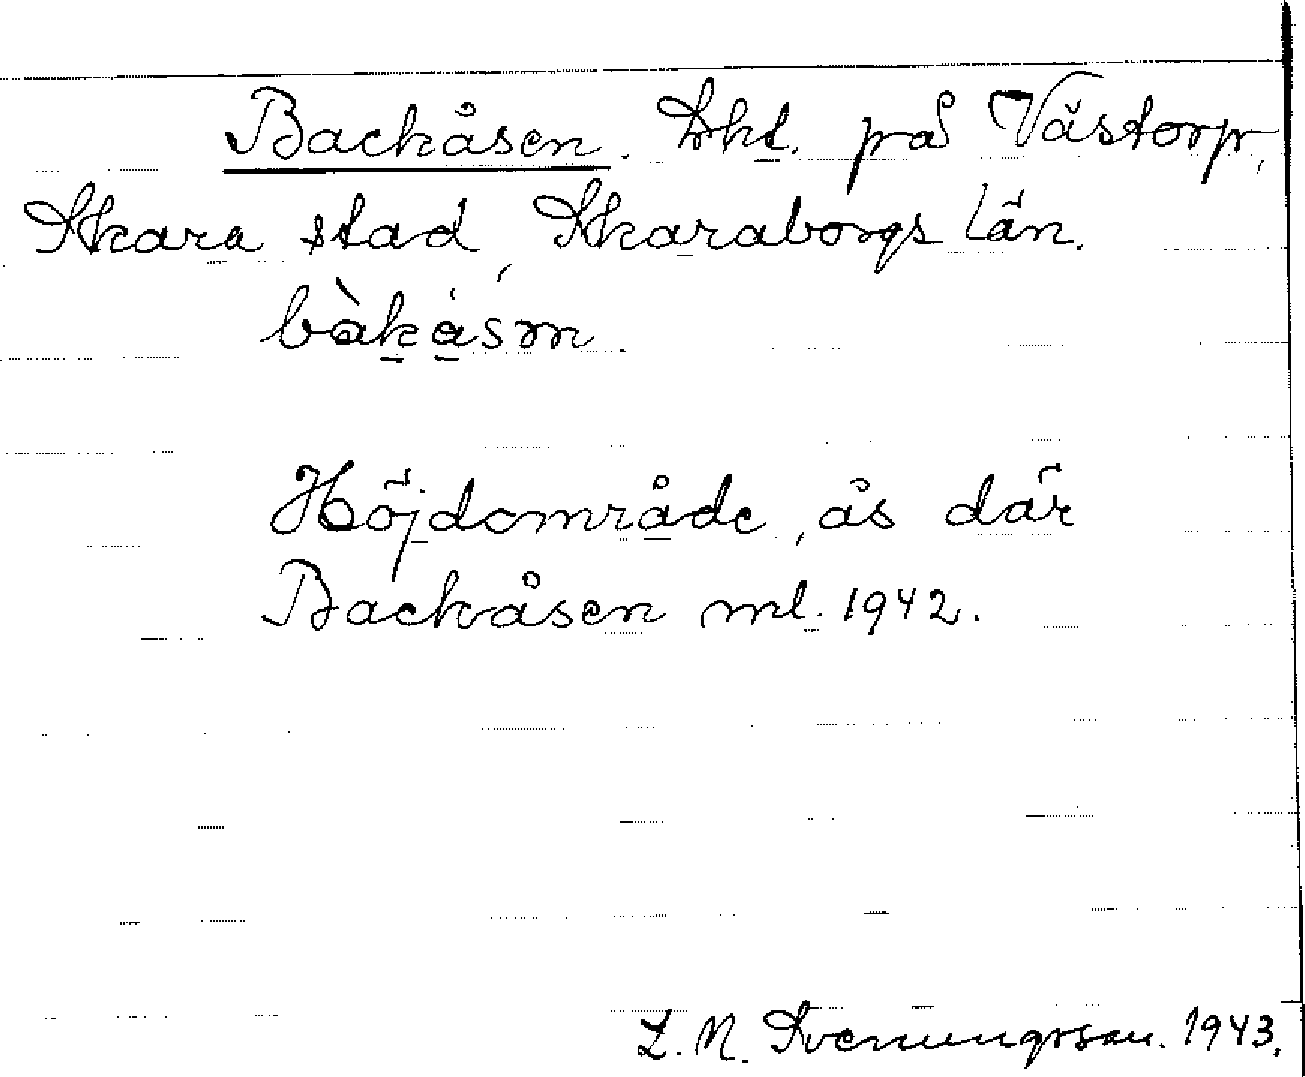 Backåsen. Lht. på Västorp,
Skara stad, Skaraborgs län.
bàkåsm.
Höjdområde, ås där
Backåsen ml. 1942.
L. N. Svenungsson. 1943.